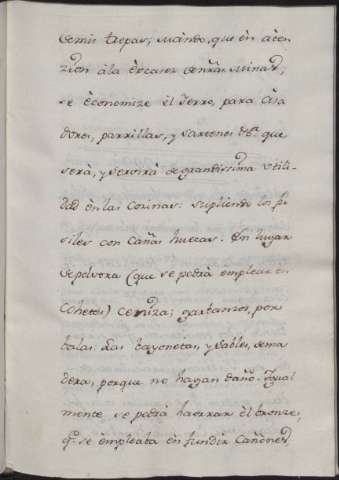 Comis tropas; Mando, que en aten-
zion àla èscases
se èconomize èl Yerro, para Asa
dores, parrillas, y sartenes &ª. que
serà, y servirà de grandissima vtili-
dad èn las Cosinas: supliendo los fu
siles con Cañas huecas: En lugar
de polvora (que se podrà emplear en
Cohetes) Ceniza; garvansos, por
balas: Las bayonetas, y Sables, de ma
dera, porque no hagan daño. Ygual
mente se podrà haorrar èl bronze,
q.e se èmpleaba èn fundir Cañones,